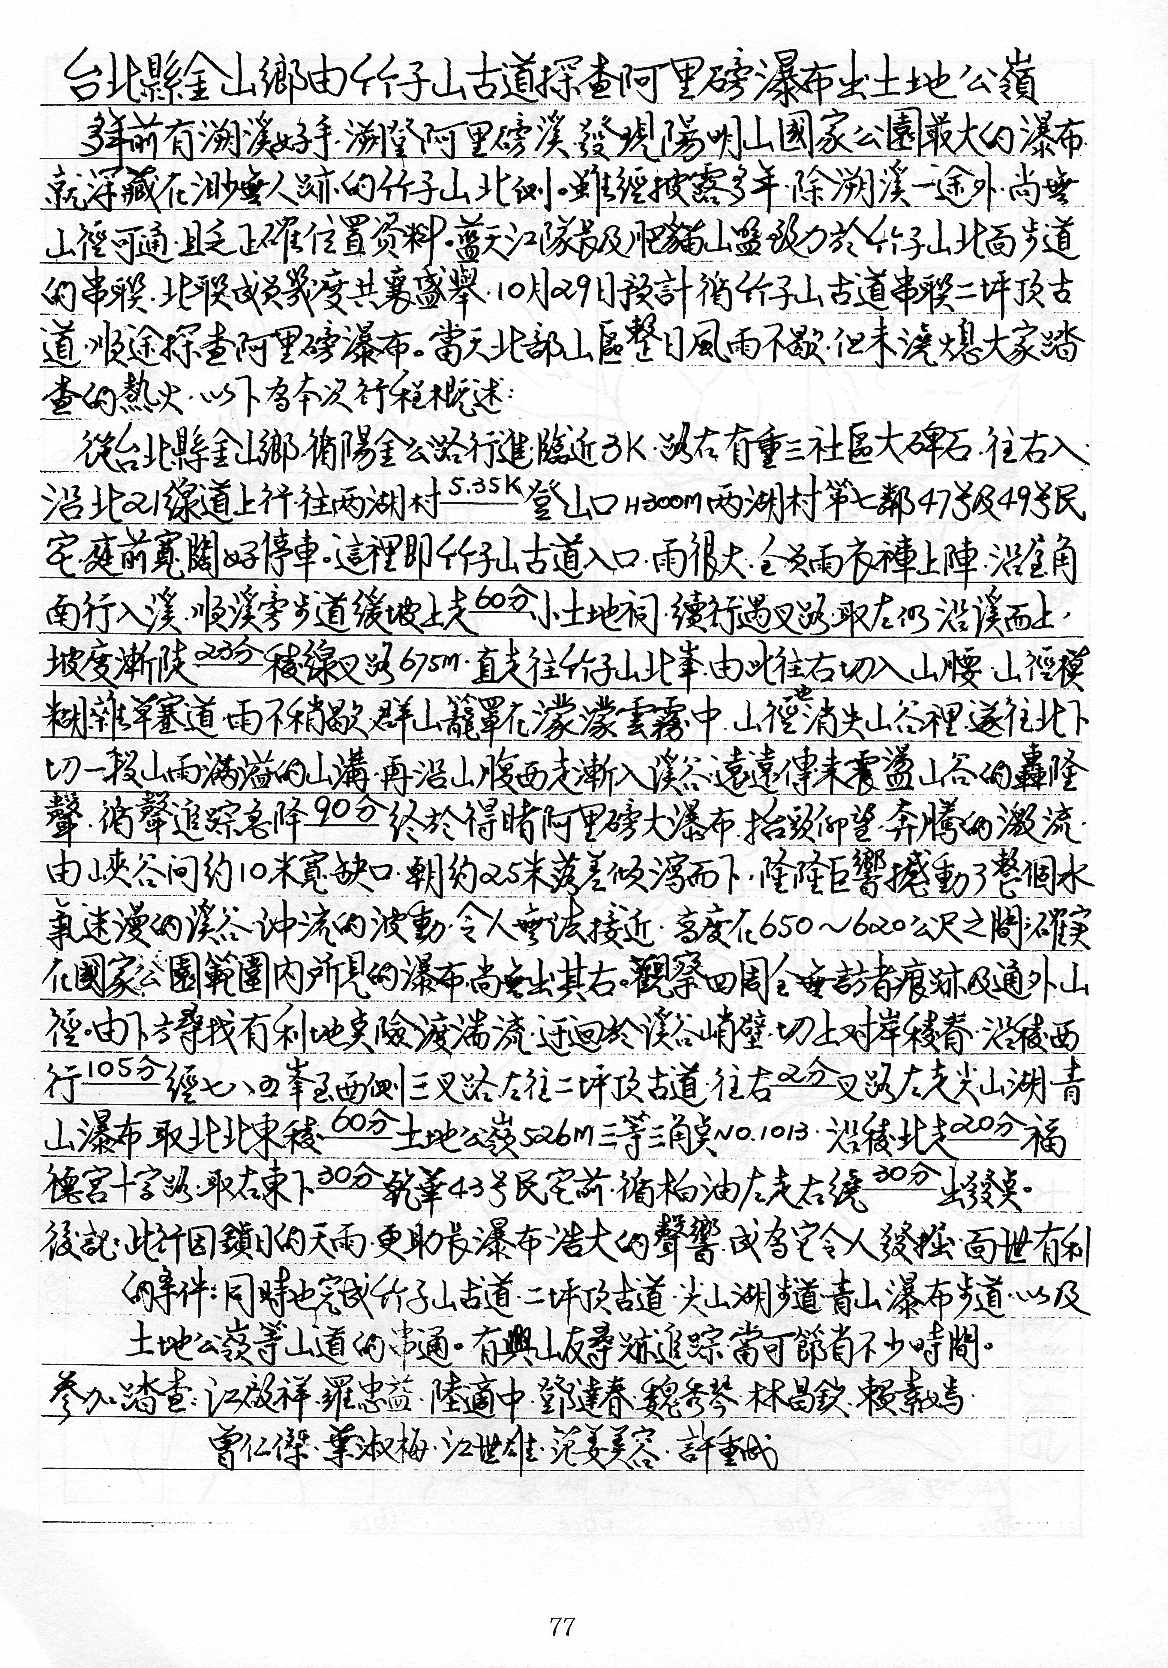 台北縣金山鄉由竹子山古道探查阿里磅瀑布出土地公嶺
多年前有溯溪好手,溯登阿里磅溪,發現陽明山國家公園最大的瀑布
就深藏在渺無人跡的竹子山北側。雖經披露多年,除溯溪一途外,尚無
山徑可通,且乏正確位置資料。藍天江隊長及肥貓山盟致力於竹子山北面步道
的串聯,北聯成員幾度共襄盛舉,10月29日預計循竹子山古道串聯二坪頂古
道,順途探查阿里磅瀑布。當天北部山區整日風雨不歇,但未澆熄大家踏
查的熱火,以下為本次行程概述:
從台北縣金山鄉,循陽金公路行進,臨近3K,路左有重三社區大碑石,往右入,
沿北21線道上行往兩湖村5.35K登山口H300M兩湖村第七鄰47号及49号民
宅,庭前寬闊好停車。這裡即竹子山古道入口,雨很大,全員雨衣褲上陣,沿宅角
南行入溪,順溪旁步道緩坡上走60分小土地祠,續行遇叉路,取左仍沿溪而上,
坡度漸陡23分稜線叉路675m,直走往竹子山北峯,由此往右切入山腰,山徑模
糊雜草塞道,雨不稍歇,群山籠罩在濛濛雲霧中,山徑也消失山谷裡,遂往北下
切一段山雨滿溢的山溝,再沿山腹西走漸入溪谷,遠遠傳來震盪山谷的轟隆
聲,循聲追踪急降90分終於得睹阿里磅大瀑布,抬頭仰望,奔騰的激流,
由峽谷间約10米寬缺口,朝約25米落差傾瀉而下,隆隆巨響撼動了整個水
氣迷漫的溪谷,沖流的波動,令人無法接近,高度在650~620公尺之間,確实
在國家公園範圍內所見的瀑布,尚無出其右。觀察四周全無訪者痕跡及通外山
徑,由下方尋找有利地夾險渡湍流,迂迴於溪谷峭壁,切上对岸稜脊,沿稜西
行105分經七八五峯至西側三叉路左往二坪頂古道,往右2分叉路左走尖山湖青
山瀑布,取北北東稜60分土地公嶺526m三等三角点NO.1013,沿稜北走20分福
德宮十字路,取右東下30分乾華43号民宅前,循柏油左走右繞30分出發点。
後記:此行因鎮日的天雨,更助長瀑布浩大的聲響,成為它令人發掘,面世有利
的条件:同時也完成竹子山古道,二坪頂古道,尖山湖步道,青山瀑布步道,以及
土地公嶺等山道的串通。有興山友尋跡追踪當可節省不少時間。
參加踏查:江啟祥,羅忠益,陸適中,鄧達春,魏秀琴,林昌欽,賴素嫣,
曾仁傑,葉淑梅,江世雄,范姜美容,許重成
77